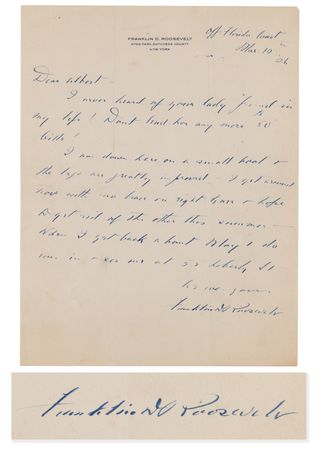 FRANKLIN D. ROOSEVELT
HYDE PARK, DUTCHESS COUNTY
NEW YORK
Off Florida Coast
Mar 10
26
Dear Albert —
I never heard of your lady friend in
my life! Don't send her any more $
bills!
I am down here on a small boat &
the legs are greatly improved — I get around
now with no brace on right knee & hope
to get rid of the other this summer —
When I get back about May 1 do
run in & see me at 52 Liberty St
As ever yours
Franklin D Roosevelt
Franklin D Roosevelt